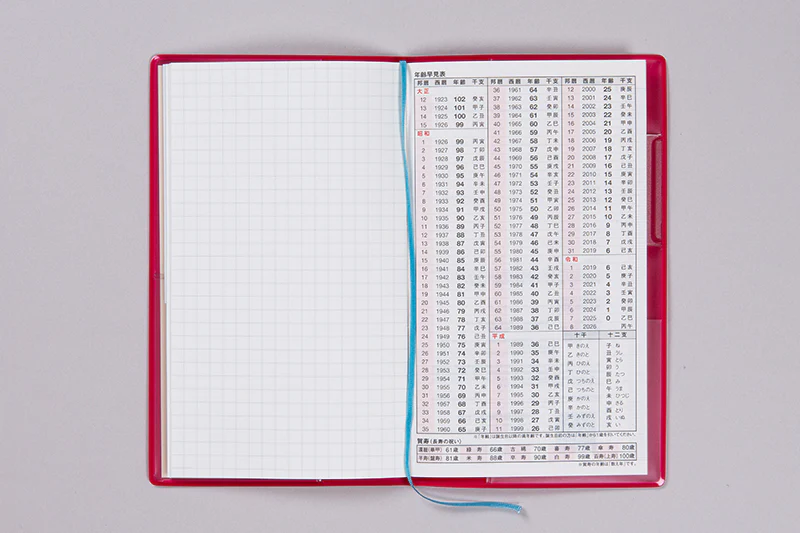 年齢早見表
邦暦 西暦 年齢 干支
大正
12 1923 102 癸亥
13 1924 101 甲子
14 1925 100 乙丑
15 1926 99 丙寅
昭和
1 1926 99 丙寅
2 1927 98 丁卯
3 1928 97 戊辰
4 1929 96 己巳
5 1930 95 庚午
6 1931 94 辛未
7 1932 93 壬申
8 1933 92 癸酉
9 1934 91 甲戌
10 1935 90 乙亥
11 1936 89 丙子
12 1937 88 丁丑
13 1938 87 戊寅
14 1939 86 己卯
15 1940 85 庚辰
16 1941 84 辛巳
17 1942 83 壬午
18 1943 82 癸未
19 1944 81 甲申
20 1945 80 乙酉
21 1946 79 丙戌
22 1947 78 丁亥
23 1948 77 戊子
24 1949 76 己丑
25 1950 75 庚寅
26 1951 74 辛卯
27 1952 73 壬辰
28 1953 72 癸巳
29 1954 71 甲午
30 1955 70 乙未
31 1956 69 丙申
32 1957 68 丁酉
33 1958 67 戊戌
34 1959 66 己亥
35 1960 65 庚子
邦暦 西暦 年齢 干支
36 1961 64 辛丑
37 1962 63 壬寅
38 1963 62 癸卯
39 1964 61 甲辰
40 1965 60 乙巳
41 1966 59 丙午
42 1967 58 丁未
43 1968 57 戊申
44 1969 56 己酉
45 1970 55 庚戌
46 1971 54 辛亥
47 1972 53 壬子
48 1973 52 癸丑
49 1974 51 甲寅
50 1975 50 乙卯
51 1976 49 丙辰
52 1977 48 丁巳
53 1978 47 戊午
54 1979 46 己未
55 1980 45 庚申
56 1981 44 辛酉
57 1982 43 壬戌
58 1983 42 癸亥
59 1984 41 甲子
60 1985 40 乙丑
61 1986 39 丙寅
62 1987 38 丁卯
63 1988 37 戊辰
64 1989 36 己巳
平成
1 1989 36 己巳
2 1990 35 庚午
3 1991 34 辛未
4 1992 33 壬申
5 1993 32 癸酉
6 1994 31 甲戌
7 1995 30 乙亥
8 1996 29 丙子
9 1997 28 丁丑
10 1998 27 戊寅
11 1999 26 己卯
邦暦 西暦 年齢 干支
12 2000 25 庚辰
13 2001 24 辛巳
14 2002 23 壬午
15 2003 22 癸未
16 2004 21 甲申
17 2005 20 乙酉
18 2006 19 丙戌
19 2007 18 丁亥
20 2008 17 戊子
21 2009 16 己丑
22 2010 15 庚寅
23 2011 14 辛卯
24 2012 13 壬辰
25 2013 12 癸巳
26 2014 11 甲午
27 2015 10 乙未
28 2016 9 丙申
29 2017 8 丁酉
30 2018 7 戊戌
31 2019 6 己亥
令和
1 2019 6 己亥
2 2020 5 庚子
3 2021 4 辛丑
4 2022 3 壬寅
5 2023 2 癸卯
6 2024 1 甲辰
7 2025 0 乙巳
8 2026 丙午
十干
甲 きのえ
乙 きのと
丙 ひのえ
丁 ひのと
戊 つちのえ
己 つちのと
庚 かのえ
辛 かのと
壬 みずのえ
癸 みずのと
十二支
子 ね
丑 うし
寅 とら
卯 う
辰 たつ
巳 み
午 うま
未 ひつじ
申 さる
酉 とり
戌 いぬ
亥 い
※「年齢」は誕生日以降の満年齢です。誕生日前の方は「年齢」から1歳を引いてください。
賀寿(長寿の祝い)
還暦(華甲) 61歳 緑寿 66歳 古稀 70歳 喜寿 77歳 傘寿 80歳
半寿(盤寿) 81歳 米寿 88歳 卒寿 90歳 白寿 99歳 百寿(上寿) 100歳
※賀寿の年齢は「数え年」です。